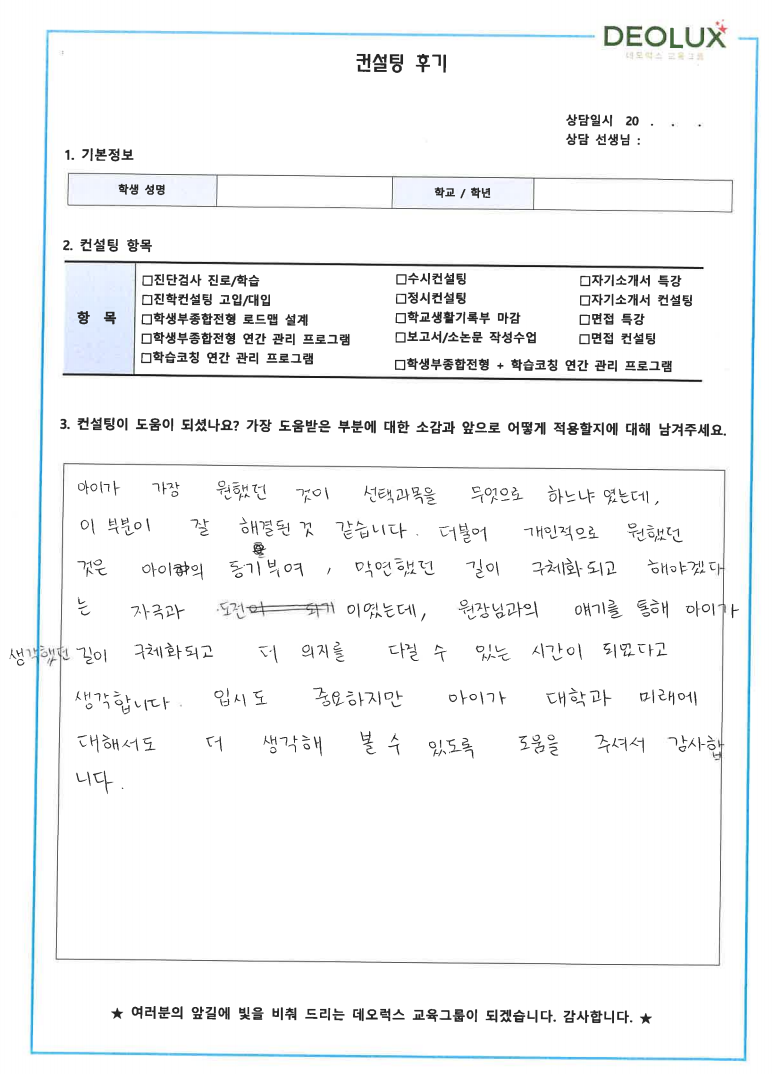 DEOLUX
데오럭스 교육그룹
컨설팅 후기
상담일시 20 . . .
상담 선생님 :
1. 기본정보
학생 성명 학교 / 학년
2. 컨설팅 항목
항 목
□진단검사 진로/학습 □수시컨설팅 □자기소개서 특강
□진학컨설팅 고입/대입 □정시컨설팅 □자기소개서 컨설팅
□학생부종합전형 로드맵 설계 □학교생활기록부 마감 □면접 특강
□학생부종합전형 연간 관리 프로그램 □보고서/소논문 작성수업 □면접 컨설팅
□학습코칭 연간 관리 프로그램 □학생부종합전형 + 학습코칭 연간 관리 프로그램
3. 컨설팅이 도움이 되셨나요? 가장 도움받은 부분에 대한 소감과 앞으로 어떻게 적용할지에 대해 남겨주세요.
아이가 가장 원했던 것이 선택과목을 무엇으로 하느냐 였는데,
이 부분이 잘 해결된 것 같습니다. 더불어 개인적으로 원했던
것은 아이의 동기부여, 막연했던 길이 구체화되고 해야겠다
는 자극과 도전 이였는데, 원장님과의 얘기를 통해 아이가
생각했던 길이 구체화되고 더 의지를 다질 수 있는 시간이 되었다고
생각합니다. 입시도 중요하지만 아이가 대학과 미래에
대해서도 더 생각해 볼 수 있도록 도움을 주셔서 감사합
니다.
★ 여러분의 앞길에 빛을 비춰 드리는 데오럭스 교육그룹이 되겠습니다. 감사합니다. ★